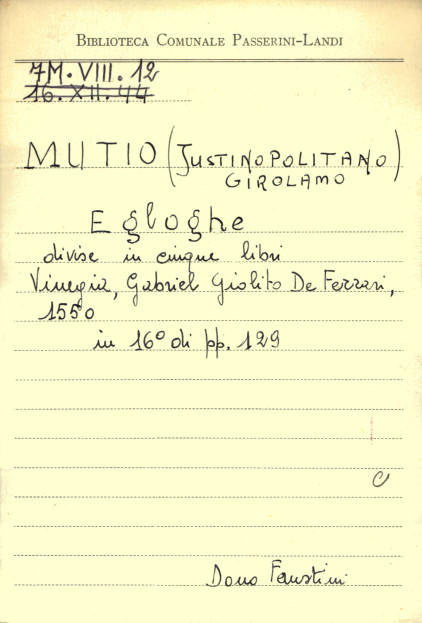 BIBLIOTECA COMUNALE PASSERINI-LANDI
7M.VIII.12
16.XII.44
MUTIO (JUSTINOPOLITANO)
GIROLAMO
Egloghe
divise in cinque libri
Vinegia, Gabriel Giolito De Ferrari,
1550
in 16° di pp. 129
C
Dono Faustini